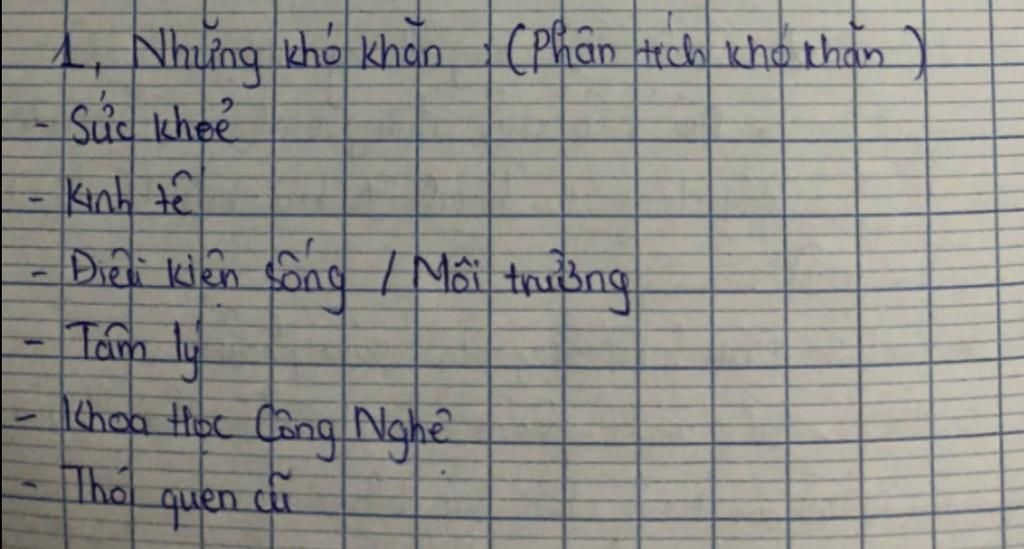 1, Những khó khăn (Phân tích khó khăn)
- Sức khoẻ
- Kinh tế
- Điều kiện sống / Môi trường
- Tâm lý
- Khoa Học Công Nghệ
- Thói quen cũ